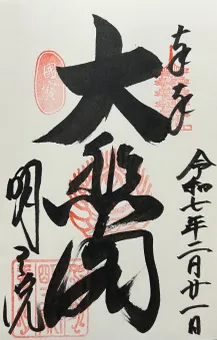 奉拝
令和七年二月廿一日
大悲閣
國寳
明王院